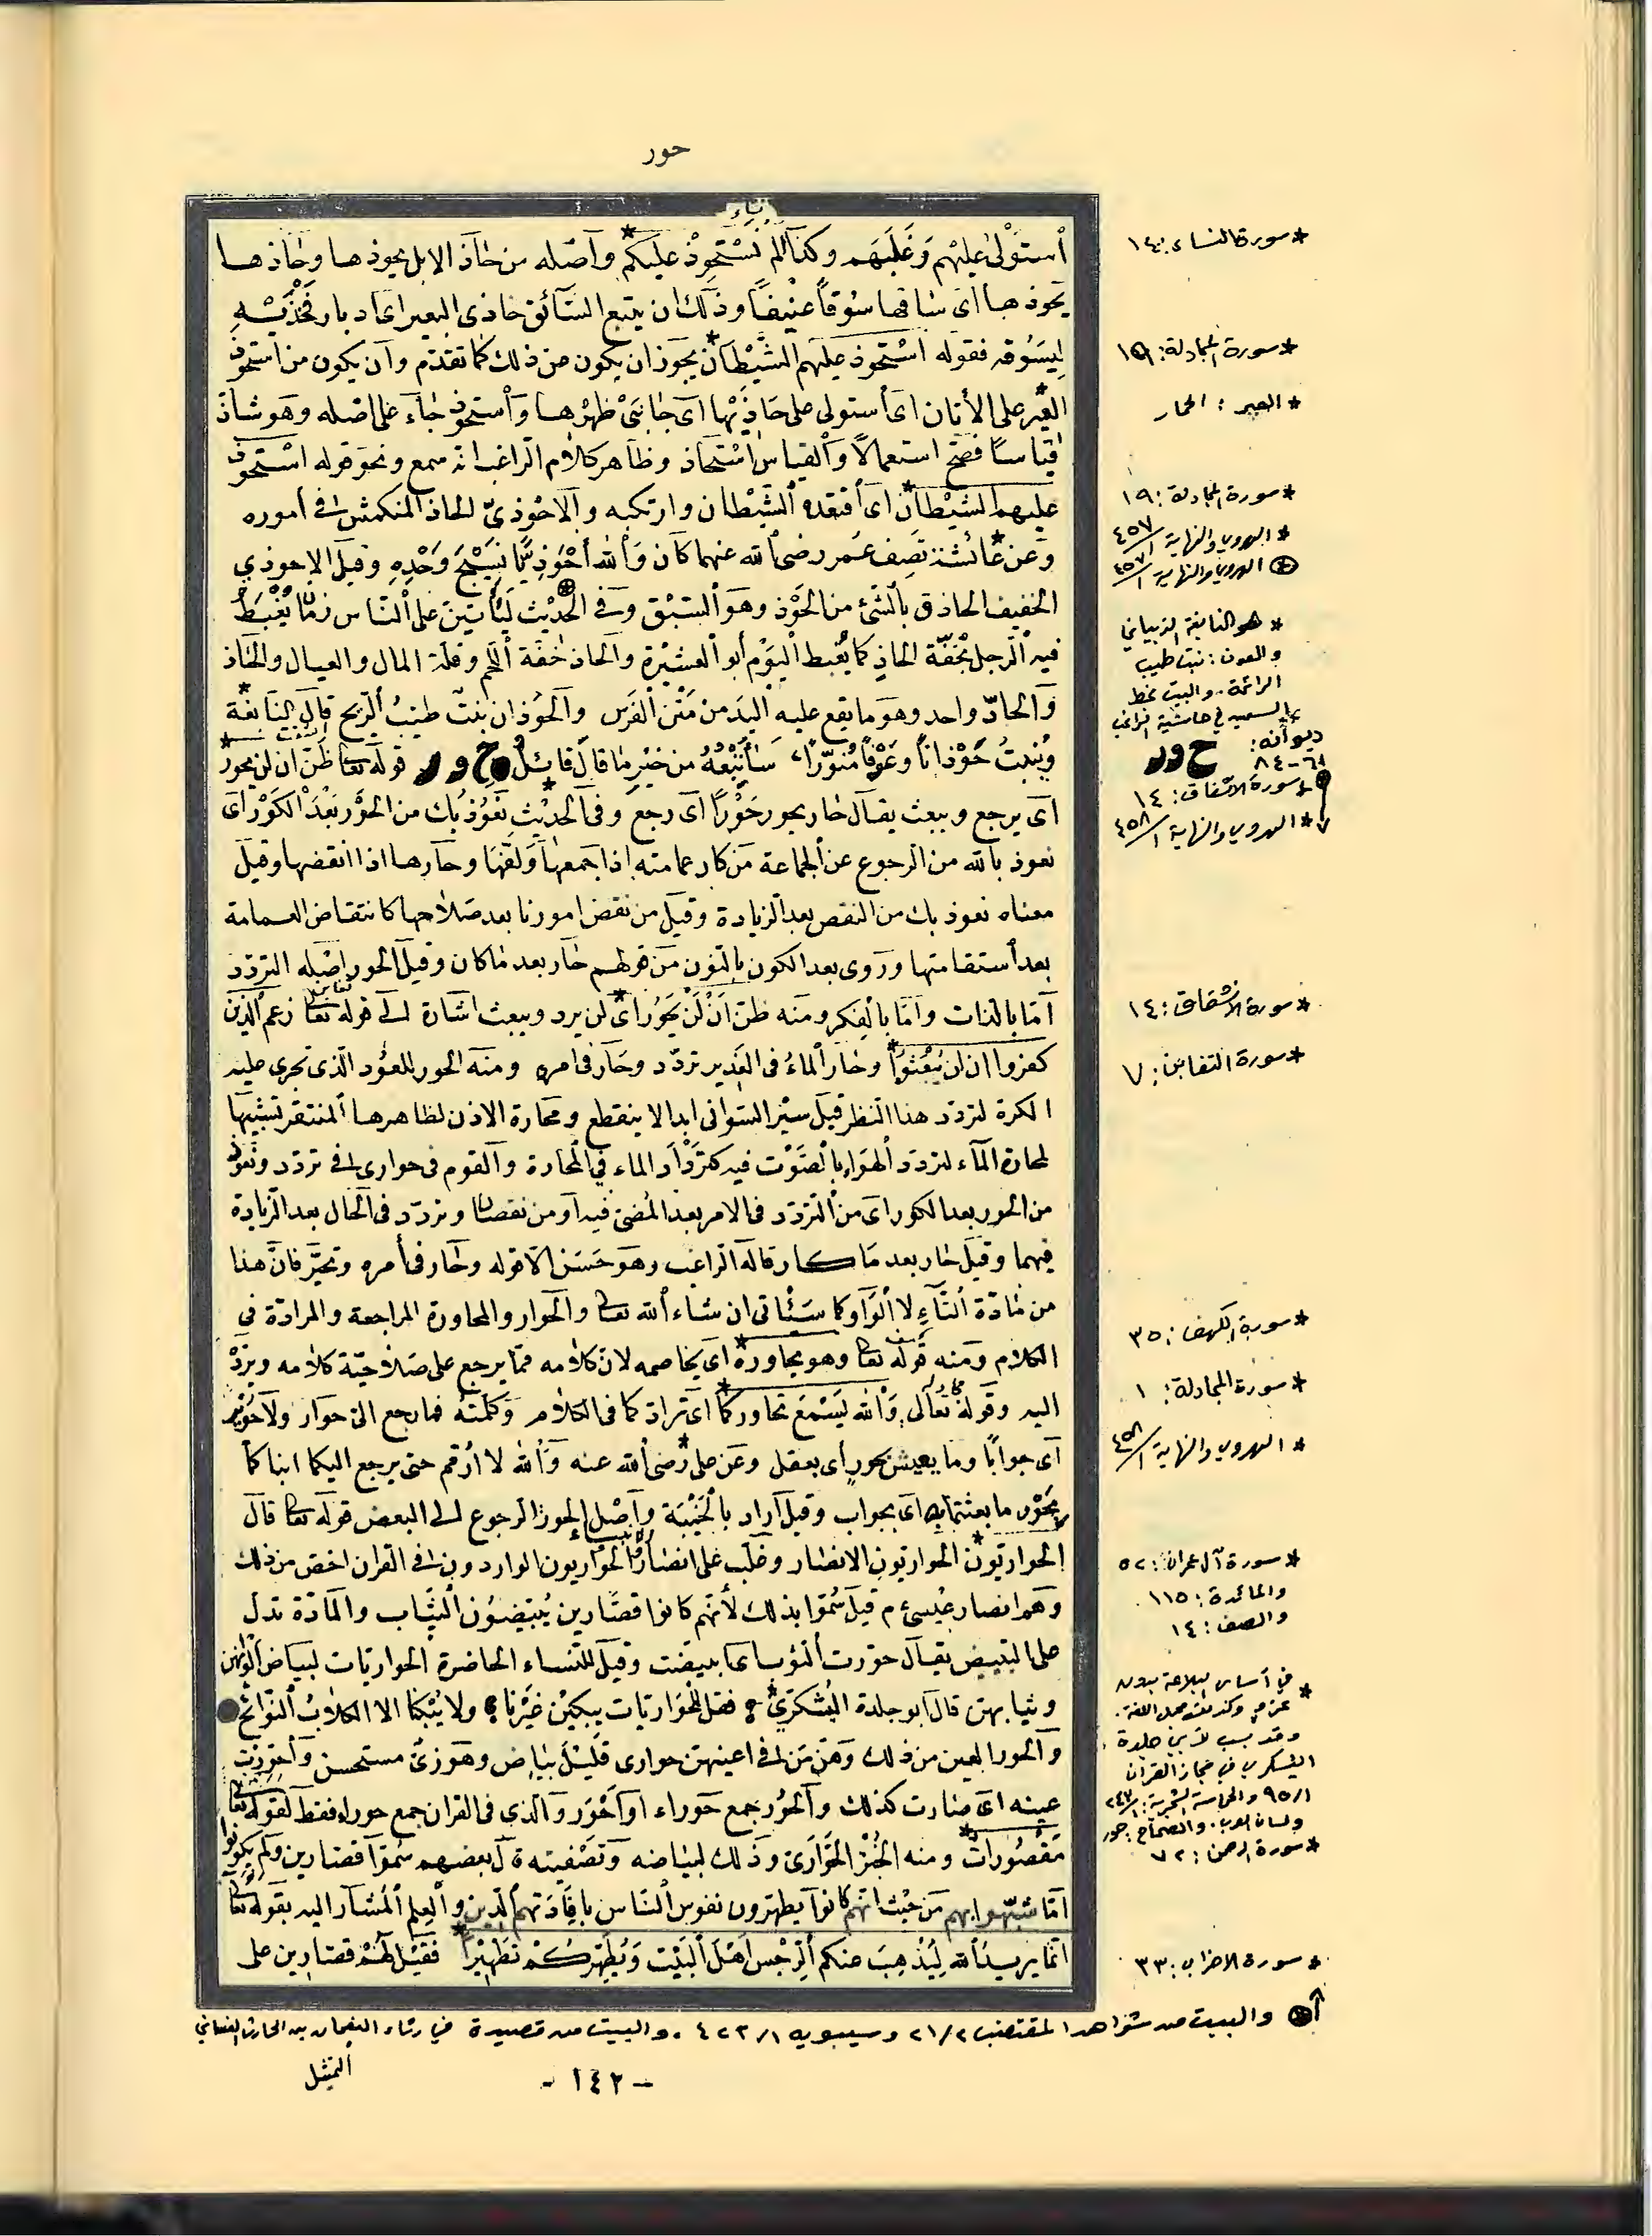 حور
نساء
أستولى عليهم وغلبهم وكذا ألم نستحوذ عليكم* وأصله من حاذ الابل يحوذها وحاذها
يحوذها اى ساقها سوقاً عنيفاً وذلك ان يتبع السآئق حاذى البعير اى ادبار فخذيه
ليسوقه فقوله استحوذ عليهم الشيطان* يجوز ان يكون من ذلك كما تقدم وأن يكون من استحوذ
العير* على الأتان اى أستولى على حاذيها اى جانبى ظهرها وأستحوذ جاء على اصله وهو شاذ
قياسًا فصيح استعمالاً والقياس استحاذ وظاهر كلام الراغب انه سمع ونحو قوله استحوذ
عليهم الشيطان* اى أفتقده الشيطان وارتكبه والاحوذى الحاذ المنكمش فى أموره
وعن عائشة* تصف عمر رضى الله عنهما كان والله أحوذيًّا نسيج وحده وقيل الاحوذي
الخفيف الحاذق بالشئ من الحوذ وهو السبق وفى الحديث ليأتين على الناس زمان يغبط
فيه الرجل بخفة الحاذ كما يغبط اليوم أبو العشيرة والحاذ خفة اللحم وقلة المال والعيال والحاذ
والحاذ واحد وهو ما يقع عليه اليد من متن الفرس والحوذان نبت طيب الريح قال النابغة*
وينبت حوذاناً وعوفاً منوّراً، سأتبعه من خير ما قال قائل ح و ر قوله تعا ظن ان لن يحور*
اى يرجع ويبعث يقال حار يحور حورًا اى رجع وفى الحديث* نعوذ بك من الحور بعد الكور اى
نعوذ بالله من الرجوع عن الجماعة من كار عمامته اذا جمعها ولفها وحارها اذا انقضها وقيل
معناه نعوذ بك من النقص بعد الزيادة وقيل من نقض امورنا بعد صلاحها كانتقاض العمامة
بعد أستقامتها وروى بعد الكون بالنون من قولهم حار بعد ما كان وقيل الحور اصله التردد
أما بالذات وأما بالفكر ومنه ظن أن لن يحور* اى لن يرد ويبعث اشارة الى قوله تعا زعم الذين
كفروا ان لن يبعثوا* وحار الماء فى الغدير تردد وحار فى امره ومنه الحور للعود الذى تجرى عليه
الكرة لتردد هذا النظر قيل سير السوانى ابدا لا ينقطع ومحارة الاذن لظاهرها المنتقر تشبيها
لمحارة المآء لتردد الهواء بالصوت فيه كتردد الماء في المحارة والقوم فى حوارى فى تردد ونعوذ
من الحور بعد الكور اى من التردد فى الامر بعد المضى فيه او من نقصان وتردد فى الحال بعد الزيادة
فيهما وقيل حار بعد ما كار قاله الراغب وهو حسن الا قوله وحار فى أمره وتحير فان هذا
من مادة اليآء لا الواو كما سيأتى ان شاء الله تعا والحوار والمحاورة المراجعة والمرادة فى
الكلام ومنه قوله تعا وهو يحاوره* اى يخاصمه لان كلامه مما يرجع على صلاحية كلامه ويرد
اليه وقوله تعالى والله يسمع تحاوركما* اى ترادكما فى الكلام وكلمته فما رجع الى حوار ولا حوير
اى جوابًا وما يعيش بحور اى بعقل وعن على* رضى الله عنه والله لا أرقم حتى يرجع اليكما ابناكما
بحور ما بعثتما به اى بجواب وقيل أراد بالخيبة وأصل الحور الرجوع الى البعض قوله تعا قال
الحواريون* الحواريون الانصار وغلب على انصار الانبياء والحواريون الواردون فى القران اخص من ذلك
وهم انصار عيسى م قيل سموا بذلك لأنهم كانوا قصارين يبيضون الثياب والمادة تدل
على التبييض يقال حورت الثوب اى بيضت وقيل للنساء الحاضرة الحواريات لبياض ألوانهن
وثيابهن قال ابو جلدة اليشكري* فقل للحواريات يبكين غيرنا ولا يبكنا الا الكلاب النوابح
والحور العين من ذلك وهن من فى اعينهن حوارى قليل بياض وهو زى مستحسن وأحورت
عينه اى صارت كذلك والحور جمع حوراء او أحور والذى فى القران جمع حوراء فقط لقوله تعا
مقصورات* ومنه الخبز الحوارى وذلك لبياضه وتصفيته قال بعضهم سموا قصارين ولم يكونوا
امّا شبهوا بهم من حيث انهم كانوا يطهرون نفوس الناس بافادتهم الدين والعلم المشار اليه بقوله تعا
انما يريد الله ليذهب عنكم الرجس اهل البيت ويطهركم تطهيرا* فقيل لهم قصارين على
* سورة النساء: ١٤١
* سورة المجادلة: ١٩
* العير: الحمار
* سورة المجادلة: ١٩
* الهروي والنهاية ١/٤٥٧
⊛ الهروي والنهاية ١/٤٥٧
* هو النابغة الذبياني
والعوف: نبت طيب
الرائحة. والبيت بخط
ديوانه:
٦١-٨٤ ح ور
* سورة الانشقاق: ١٤
* الهروي والنهاية ١/٤٥٨
* سورة الانشقاق: ١٤
* سورة التغابن: ٧
* سورة الكهف: ٣٥
* سورة المجادلة: ١
* الهروي والنهاية ١/٤٥٨
* سورة آل عمران: ٥٢
والمائدة: ١١٥
والصف: ١٤
* في أساس البلاغة بدون
وقد نسب لأبي جلدة
اليشكري في مجاز القرآن
ولسان العرب. والصحاح: حور
* سورة الرحمن: ٧٢
* سورة الاحزاب: ٣٣
والبيت من شواهد المقتضب ٢١/٢ وسيبويه ٤٢٣/١. والبيت من قصيدة في رثاء النعمان بن الحارث الغساني
التمثيل
- ١٤٢ -